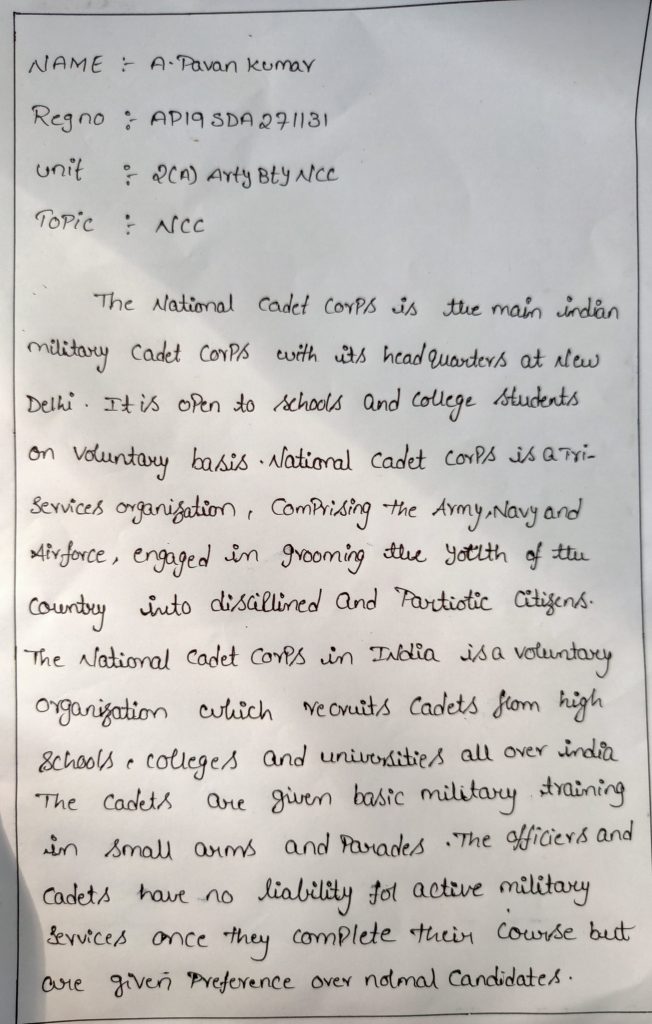 NAME :- A. Pavan kumar
Reg no :- AP19 SDA 271131
unit :- 2(A) Arty Bty NCC
Topic :- NCC
The National Cadet Corps is the main indian
military Cadet Corps with its head quarters at New
Delhi. It is open to schools and college students
on voluntary basis. National Cadet Corps is a Tri-
Services organization, Comprising the Army, Navy and
Airforce, engaged in grooming the youth of the
Country into discillined and Partiotic Citizens.
The National Cadet Corps in India is a voluntary
organization which recruits Cadets from high
schools, colleges and universities all over india
The Cadets are given basic military training
in small arms and Parades. The officiers and
Cadets have no liability for active military
Services once they complete their Course but
are given Preference over nolmal Candidates.